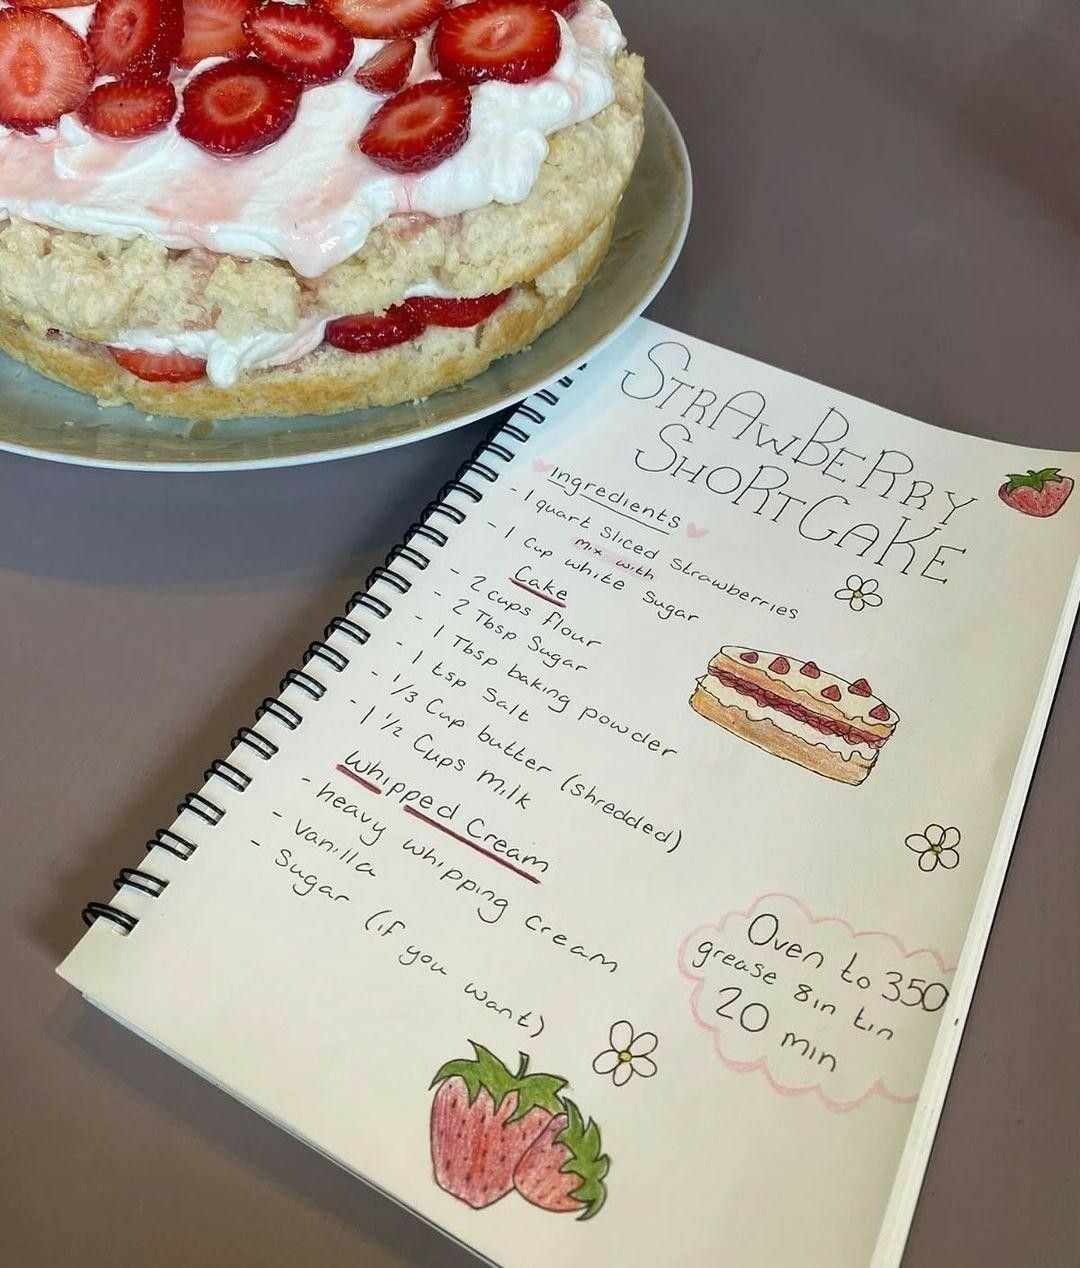 STrAwBERRY
SHORTCAKE
ingredients
- 1 quart sliced strawberries
mix with
- 1 cup white sugar
Cake
- 2 cups flour
- 2 Tbsp Sugar
- 1 Tbsp baking powder
- 1 tsp Salt
- 1/3 Cup butter (shredded)
- 1 1/2 Cups milk
Whipped Cream
- heavy whipping cream
- vanilla
- Sugar (if you want)
Oven to 350
grease 8in tin
20 min